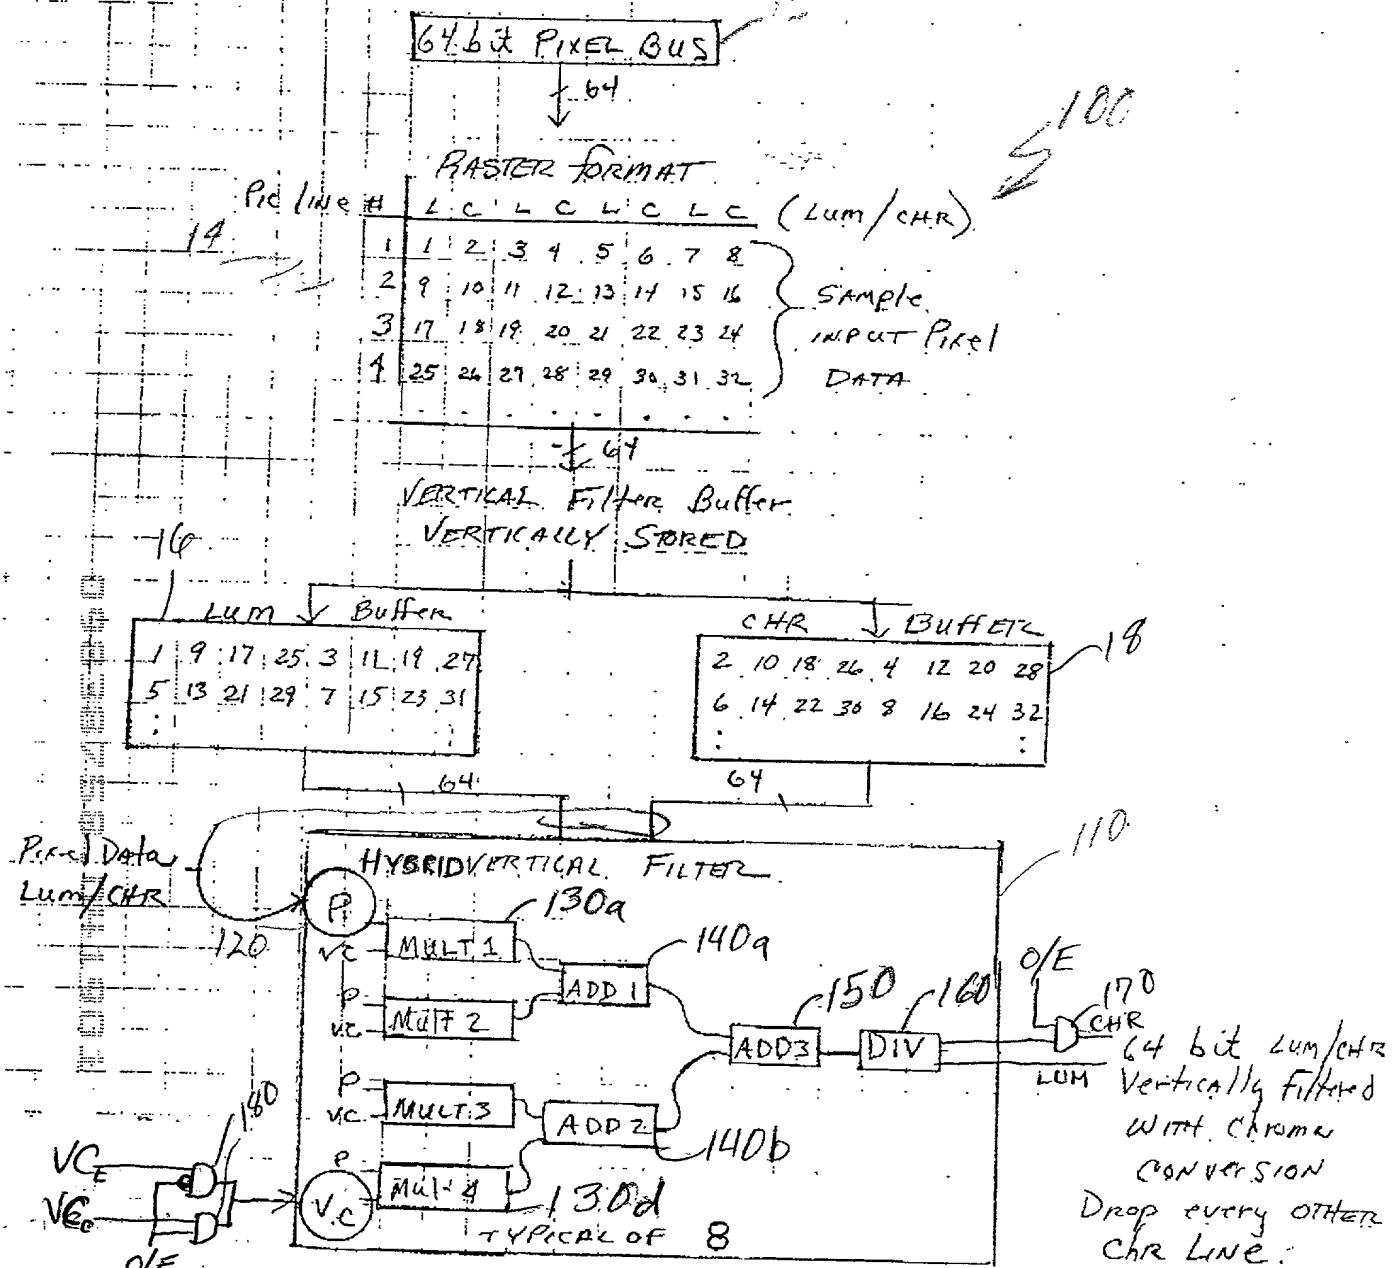 64 bit PIXEL BUS
64
100
RASTER FORMAT
Pic line # L C L C L C L C (LUM/CHR)
14
1 1 2 3 4 5 6 7 8
2 9 10 11 12 13 14 15 16
3 17 18 19 20 21 22 23 24
4 25 26 27 28 29 30 31 32
SAMPLE
INPUT Pixel
DATA
64
VERTICAL Filter Buffer
VERTICALLY STORED
16
LUM Buffer
1 9 17 25 3 11 19 27
5 13 21 29 7 15 23 31
CHR BUFFER
18
2 10 18 26 4 12 20 28
6 14 22 30 8 16 24 32
64
64
Pixel Data
Lum/CHR
120
110
HYBRID VERTICAL FILTER
P
VC
MULT 1
130a
P
VC
MULT 2
ADD 1
140a
P
VC
MULT 3
ADD 2
140b
P
V.C
MULT 4
130d
ADD3
150
DIV
160
O/E
170
CHR
LUM
64 bit LUM/CHR
Vertically Filtered
WITH Chroma
CONVERSION
Drop every OTHER
Chr LINE.
180
VCE
O/E
TYPICAL OF 8